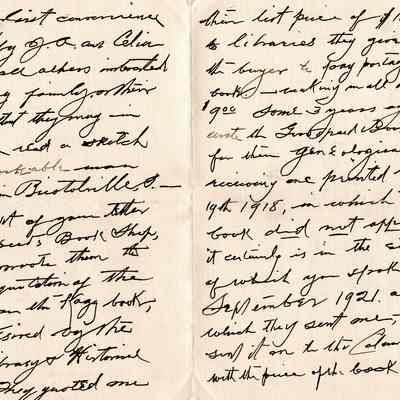 first convenience
by J. A. and Celia
and others interested
family or their
that they may in
read a sketch
remarkable man
in Bristolville, O.—
of your letter
Book Shop,
wrote them to
quotation of the
on the Kagy book,
desired by the
Library & Historical
They quoted me
their list price of $10
to libraries they give
the buyer to pay postage
book — making in all a
$9.00 Some 3 years ago
wrote the Goodspeed's Book
for their Genealogical
receiving one printed
19th 1918, in which
book did not app
it certainly is in the
of which you spoke
September 1921. a
which they sent me,
sent it on to the
with the price of the book